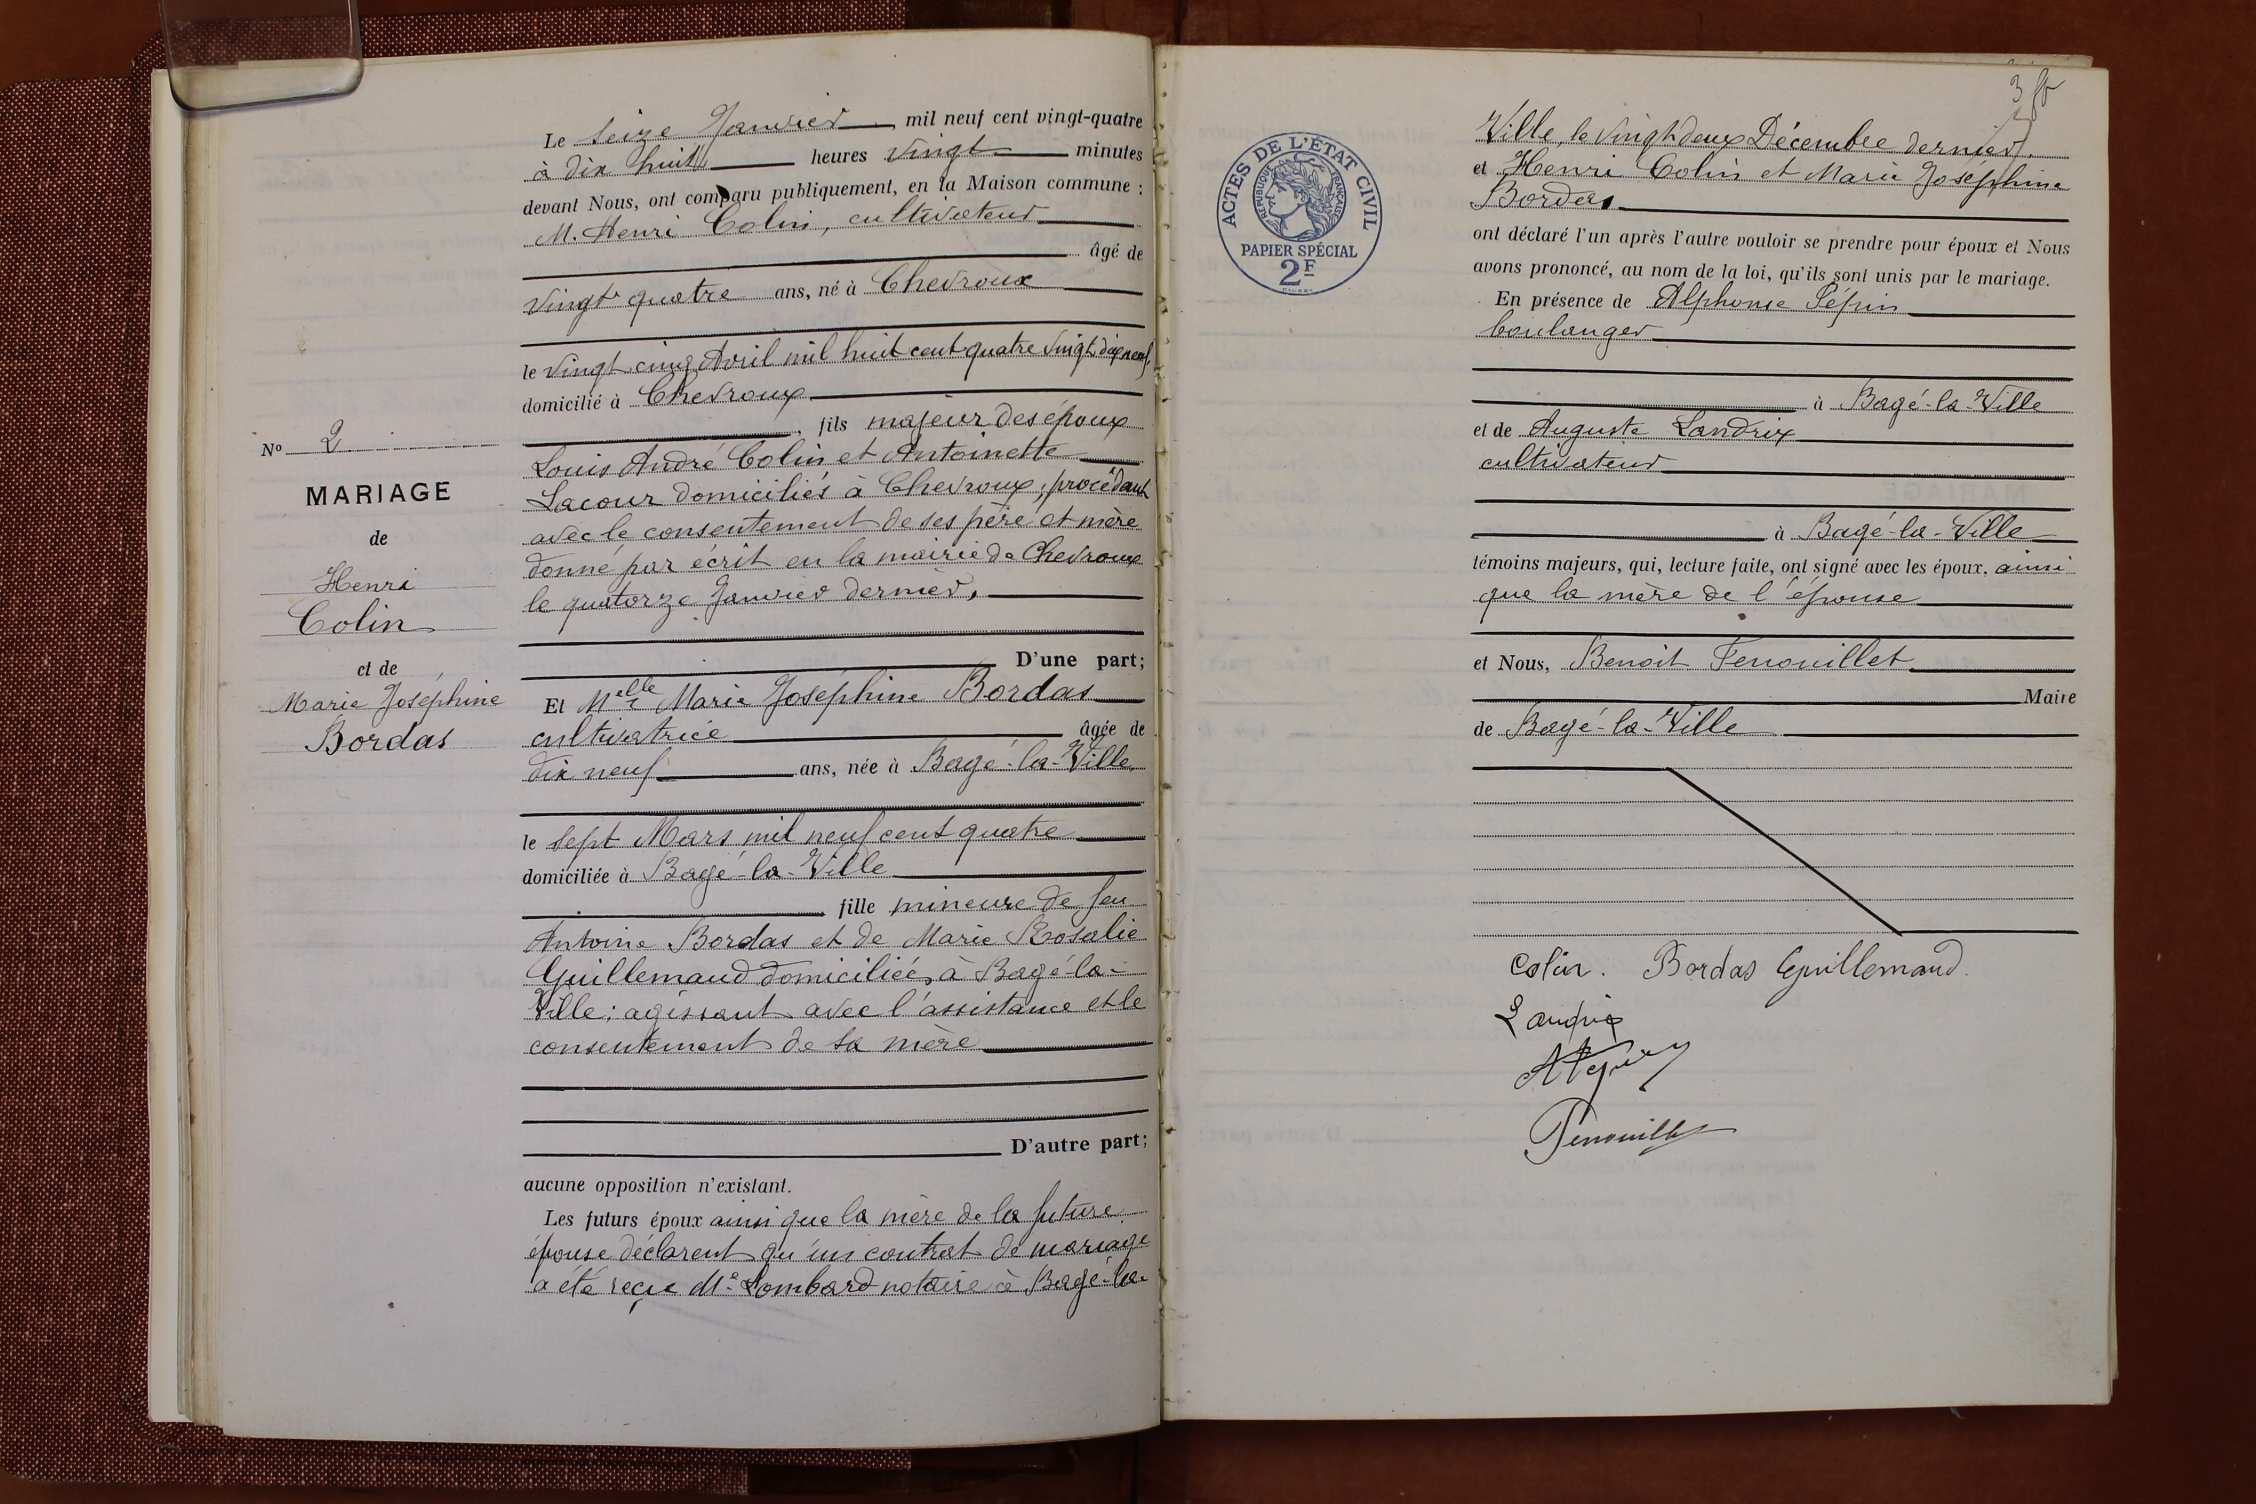 Le seize Janvier mil neuf cent vingt-quatre
à dix huit heures vingt minutes
devant Nous, ont comparu publiquement, en la Maison commune :
M. Henri Colin, cultivateur
âgé de
vingt quatre ans, né à Chevroux
le vingt cinq Avril mil huit cent quatre vingt dix neuf,
domicilié à Chevroux
fils majeur des époux
Louis André Colin et Antoinette
Lacour domiciliés à Chevroux, procédant
avec le consentement de ses père et mère
donné par écrit en la mairie de Chevroux
le quatorze Janvier dernier.
D'une part;
Et Melle Marie Joséphine Bordas
cultivatrice âgée de
dix neuf ans, née à Bagé-la-Ville
le sept Mars mil neuf cent quatre
domiciliée à Bagé-la-Ville
fille mineure de feu
Antoine Bordas et de Marie Rosalie
Guillemaud domiciliée à Bagé-la-
Ville; agissant avec l'assistance et le
consentement de sa mère
D'autre part;
aucune opposition n'existant.
Les futurs époux ainsi que la mère de la future
épouse déclarent qu'un contrat de mariage
a été reçu Me Lombard notaire à Bagé-la-
No 2
MARIAGE
de
Henri
Colin
et de
Marie Joséphine
Bordas
3
ACTES DE L'ÉTAT CIVIL
RÉPUBLIQUE FRANÇAISE
PAPIER SPÉCIAL
2F
Ville, le vingt deux Décembre dernier.
et Henri Colin et Marie Joséphine
Bordas
ont déclaré l'un après l'autre vouloir se prendre pour époux et Nous
avons prononcé, au nom de la loi, qu'ils sont unis par le mariage.
En présence de Alphonse Pépin
boulanger
à Bagé-la-Ville
et de Auguste Landrix
cultivateur
à Bagé-la-Ville
témoins majeurs, qui, lecture faite, ont signé avec les époux, ainsi
que la mère de l'épouse
et Nous, Benoit Fenouillet
Maire
de Bagé-la-Ville
Colin. Bordas Guillemaud.
Landrix
Fenouillet